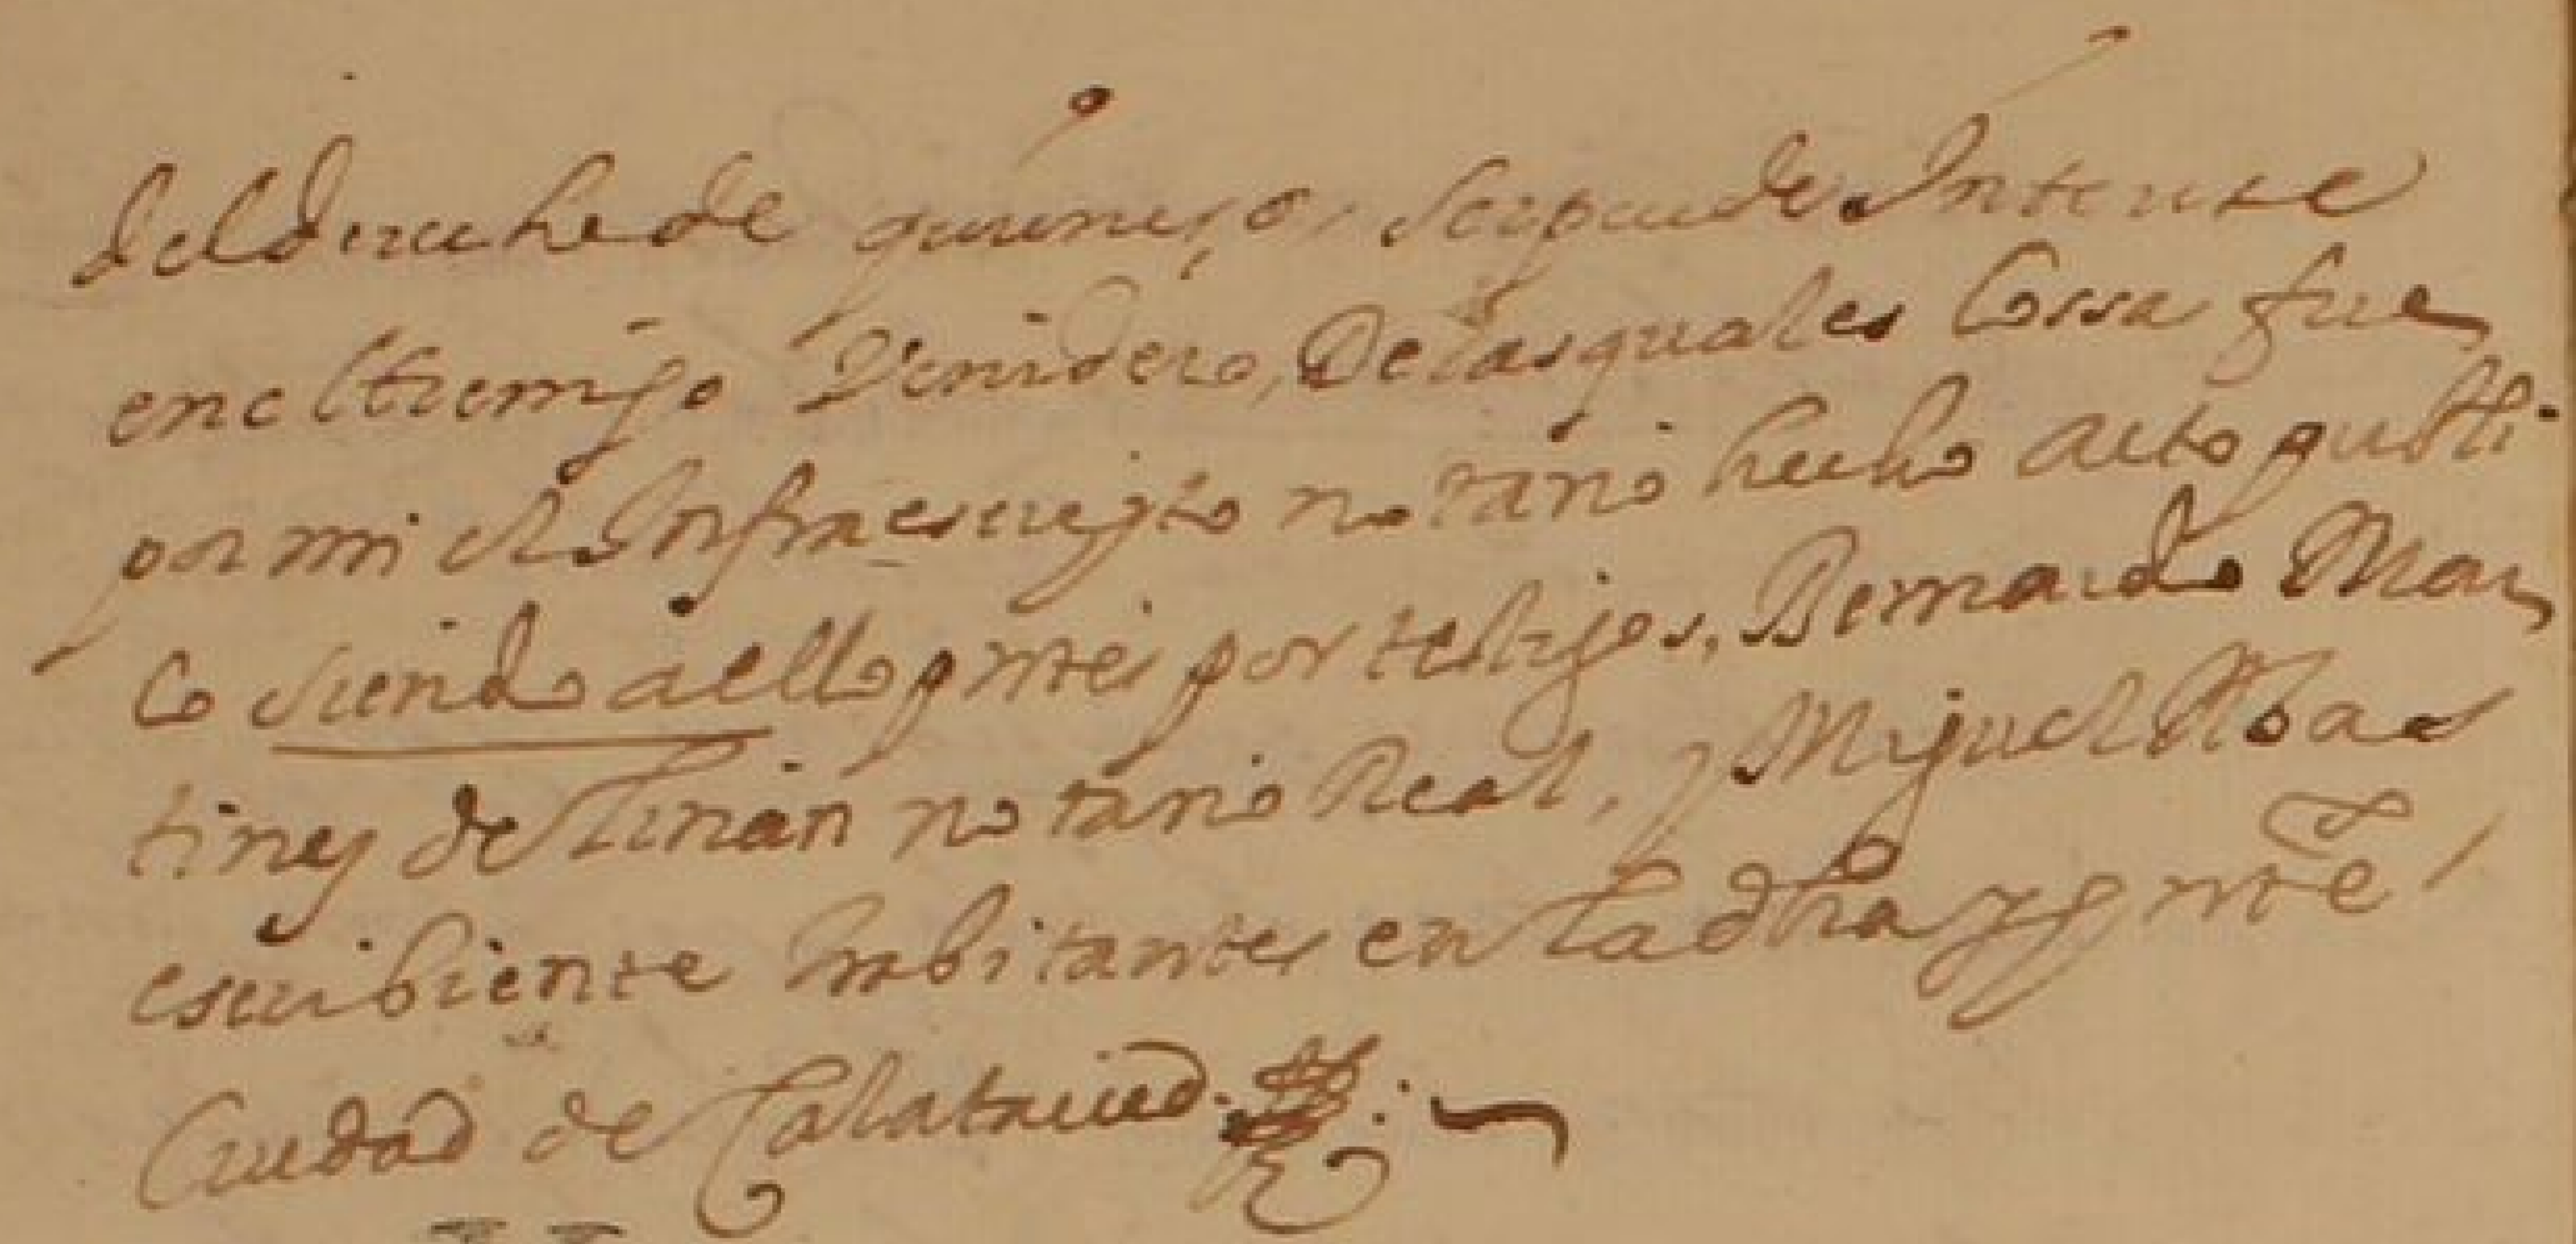 del derecho de quien es, o, sera puede Interese
en el tiempo Venidero, De las quales Cossa fue
por mi el Infraescripto notario hecho acto publi
co siendo a ello pntes por testigos, Bernardo Mar
tinez de Liñan notario Real, y Miguel Abas
escribiente habitantes en la dha y pnte
Ciudad de Calatayud.